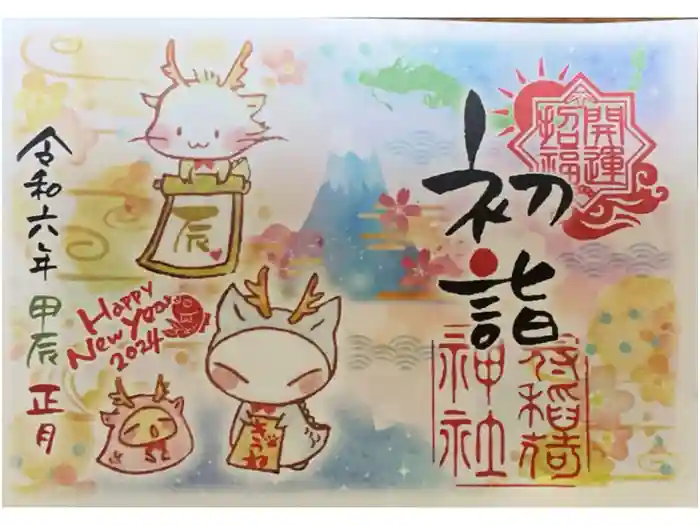 初詣
開運
招福
稲荷
神社
辰
令和六年 甲辰 正月
Happy
New Year
2024
きつね